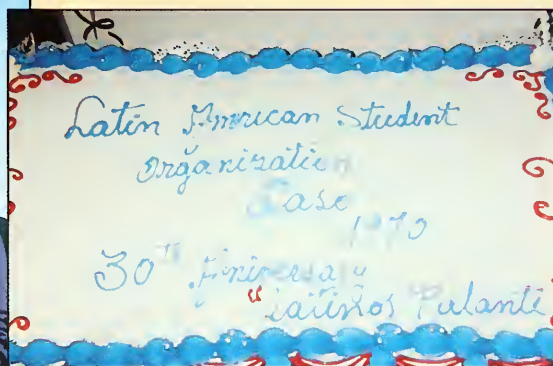 Latin Amrican Student
Organization
Laso
1970
30th Aniversay
"Latinos Pa'lante